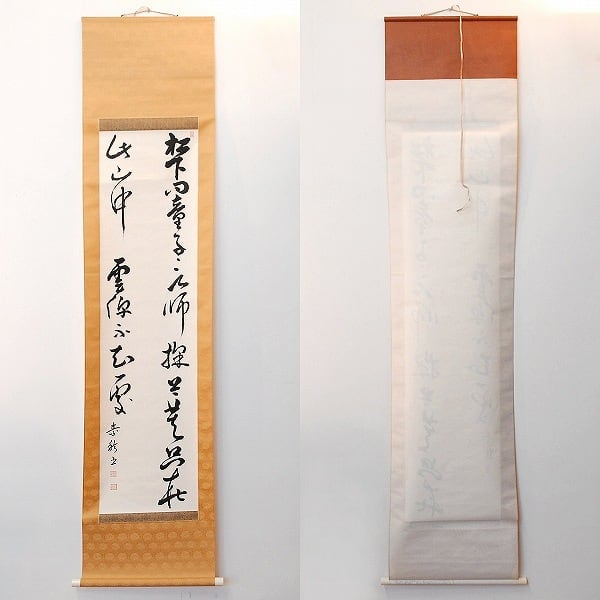 松下問童子言師採藥去只在
此山中 雲深不知處